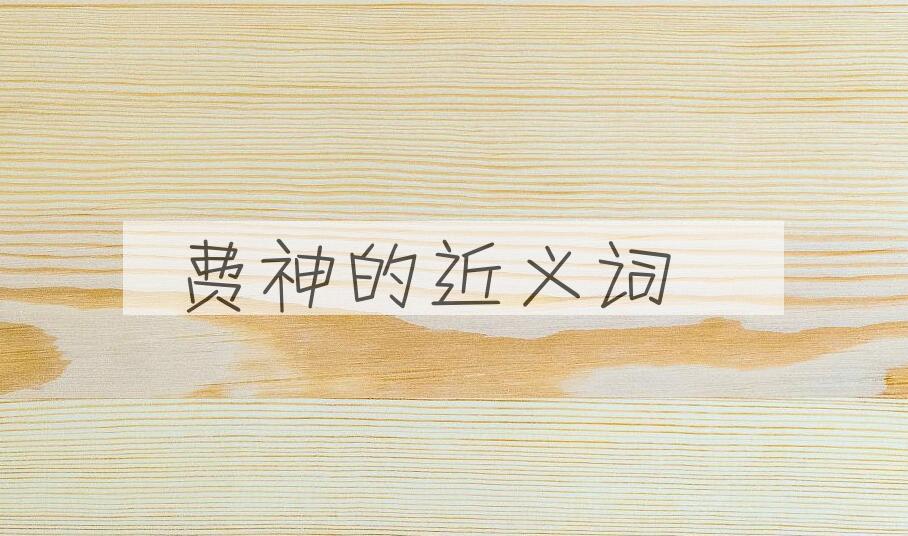 费神的近义词